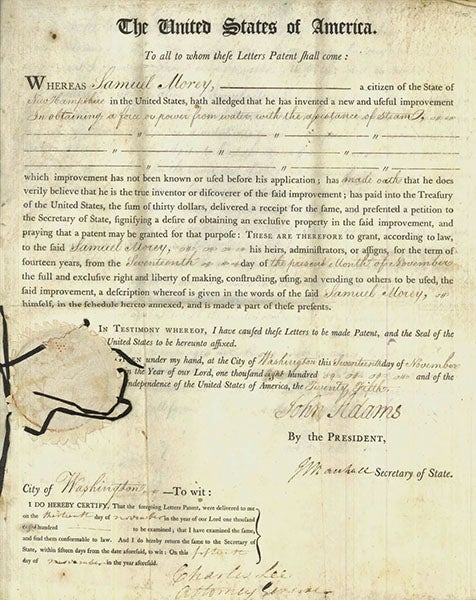 The United States of America.
To all to whom these Letters Patent shall come:
WHEREAS Samuel Morey, a citizen of the State of
New Hampshire in the United States, hath alledged that he has invented a new and useful improvement
In obtaining a force or power from water, with the assistance of Steam,
which improvement has not been known or used before his application; has made oath that he does
verily believe that he is the true inventor or discoverer of the said improvement; has paid into the Treasury
of the United States, the sum of thirty dollars, delivered a receipt for the same, and presented a petition to
the Secretary of State, signifying a desire of obtaining an exclusive property in the said improvement, and
praying that a patent may be granted for that purpose: THESE ARE THEREFORE to grant, according to law,
to the said Samuel Morey, his heirs, administrators, or assigns, for the term of
fourteen years, from the Seventeenth day of the present Month of November
the full and exclusive right and liberty of making, constructing, using, and vending to others to be used, the
said improvement, a description whereof is given in the words of the said Samuel Morey,
himself, in the schedule hereto annexed, and is made a part of these presents.
IN TESTIMONY WHEREOF, I have caused these Letters to be made Patent, and the Seal of the
United States to be hereunto affixed.
GIVEN under my hand, at the City of Washington this Seventeenth day of November
in the Year of our Lord, one thousand eight hundred and of the
Independence of the United States of America, the Twenty fifth.
John Adams
By the PRESIDENT,
J Marshall Secretary of State.
City of Washington, —To wit:
I DO HEREBY CERTIFY, That the foregoing Letters Patent, were delivered to me
on the thirteenth day of november in the year of our Lord one thousand
eight hundred to be examined; that I have examined the same,
and find them conformable to law. And I do hereby return the same to the Secretary of
State, within fifteen days from the date aforesaid, to wit: On this fifteenth
day of november in the year aforesaid.
Charles Lee
Attorney General